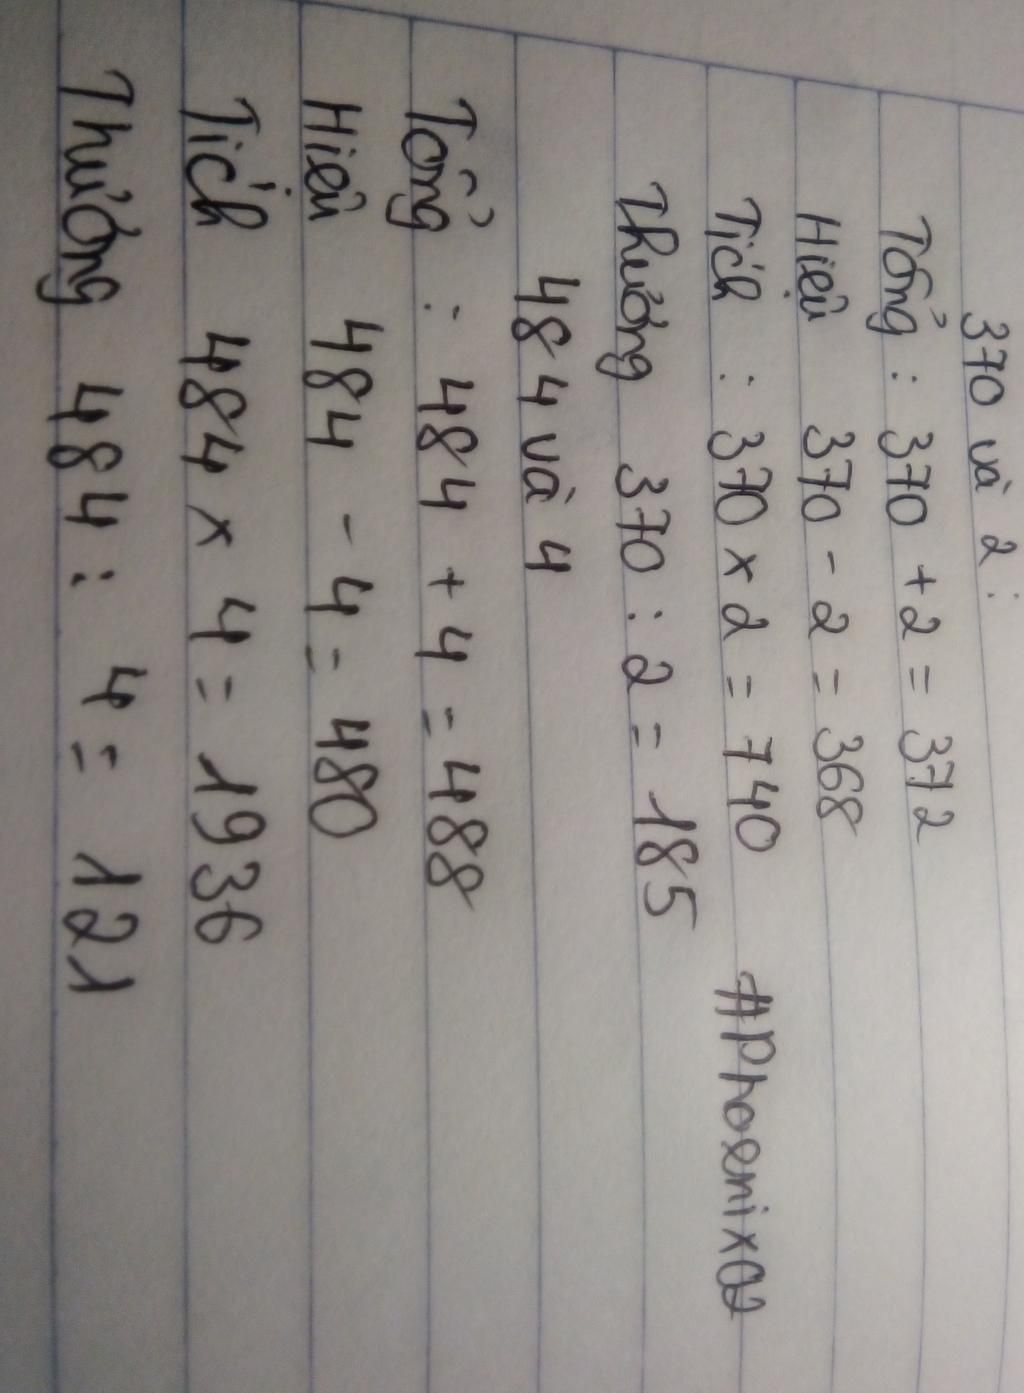 370 và 2 :
Tổng : 370 + 2 = 372
Hiệu 370 - 2 = 368
Tích : 370 x 2 = 740
Thương 370 : 2 = 185
#Phoenix
484 và 4
Tổng : 484 + 4 = 488
Hiệu 484 - 4 = 480
Tích 484 x 4 = 1936
Thương 484 : 4 = 121